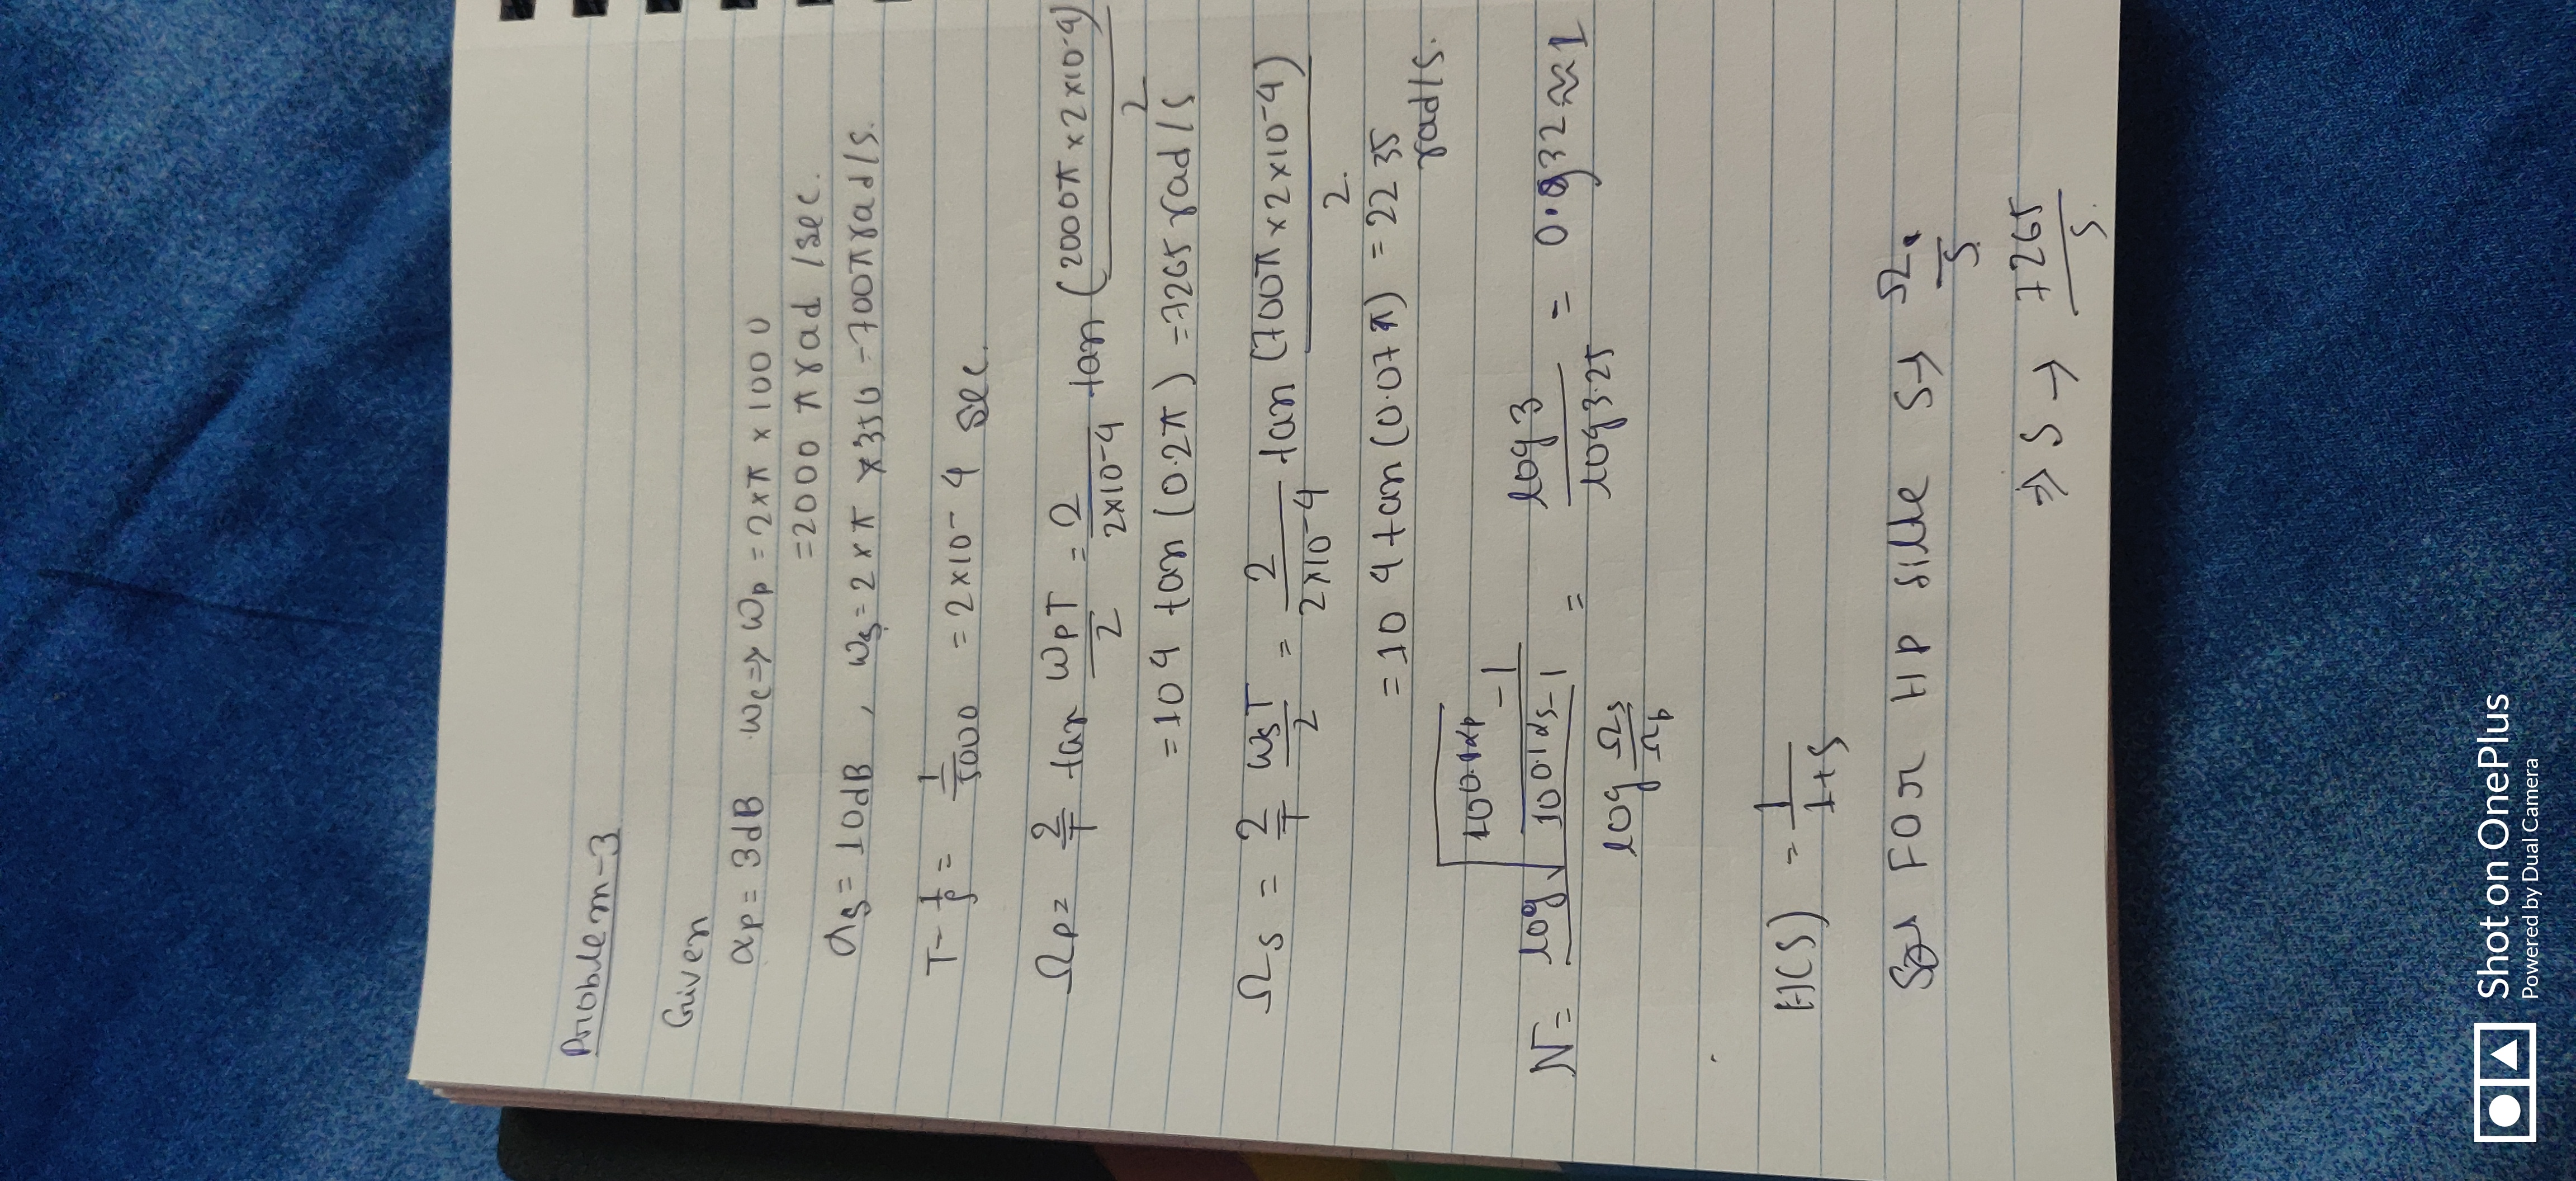 Problem-3
Given
αp = 3dB ωc => ωp = 2×π × 1000
= 2000 π rad /sec.
αs = 10dB , ωs = 2 × π × 350 = 700π rad/s.
T = 1/f = 1/5000 = 2×10-4 sec.
Ωp = 2/T tan ωpT/2 = 2/2×10-4 tan (2000π × 2×10-4)/2
= 104 tan (0.2π) = 7265 rad/s
Ωs = 2/T ωsT/2 = 2/2×10-4 tan (700π × 2×10-4)/2.
= 104 tan(0.07π) = 2235
rad/s.
N = log √(100.1αp -1/100.1αs-1) / log Ωs/Ωp = log 3/log 3.25 = 0.932 ≈ 1
H(S) = 1/1+S
FOr HP S→ Ω/S.
⇒ S → 7265/S.
Shot on OnePlus
Powered by Dual Camera